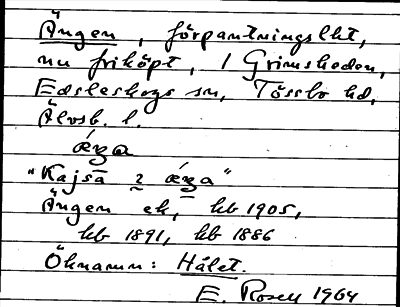 Ängen, förpantningslht,
nu friköpt, i Grimsheden,
Edsleskogs sn, Tössbo hd,
Älvsb. l.
"Kajsa
Ängen ek, hb 1905,
hb 1891, hb 1886
Öknamn: Hålet.
E. Rosell 1964